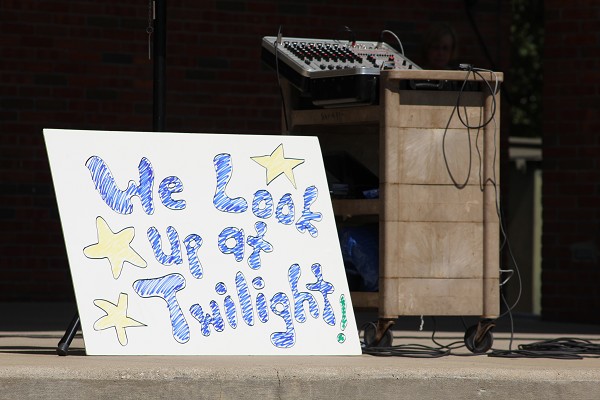 We Look
up at
Twilight!